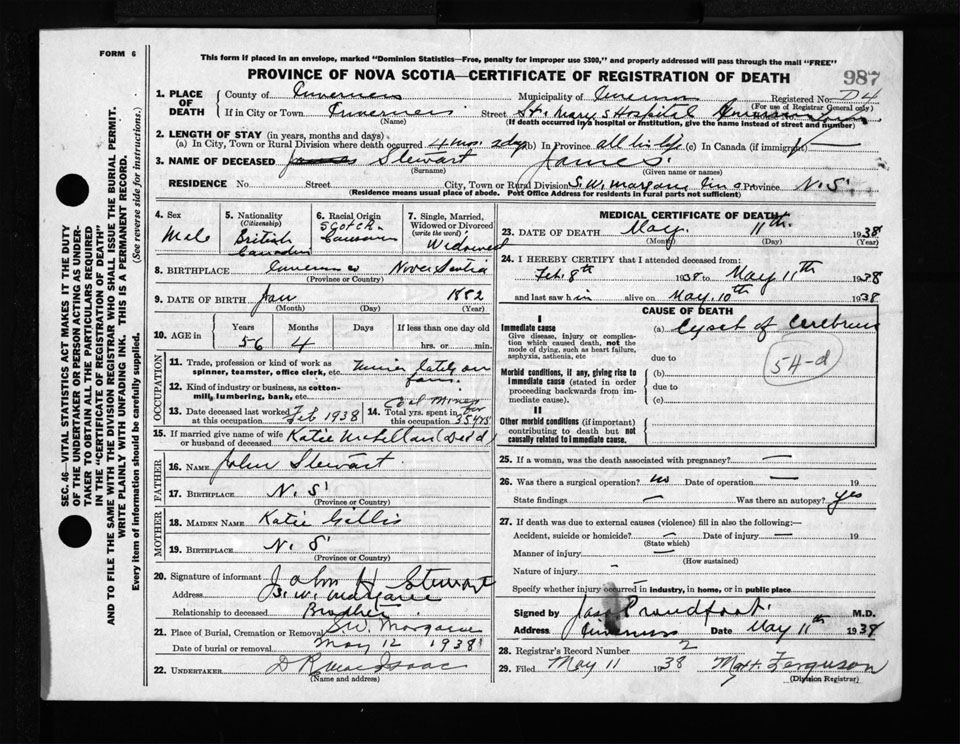 FORM 6
This form if placed in an envelope, marked "Dominion Statistics—Free, penalty for improper use $300," and properly addressed will pass through the mail "FREE"
PROVINCE OF NOVA SCOTIA—CERTIFICATE OF REGISTRATION OF DEATH
987
1. PLACE OF DEATH
County of Inverness Municipality of Inverness Registered No. D4
(For use of Registrar General only)
If in City or Town Inverness Street St. Mary's Hospital
(Name) (If death occurred in a hospital or institution, give the name instead of street and number)
2. LENGTH OF STAY (in years, months and days)
(a) In City, Town or Rural Division where death occurred 4 mos. 3 days (b) In Province all his life (c) In Canada (if immigrant) —
3. NAME OF DECEASED James Stewart James
(Surname) (Given name or names)
RESIDENCE No. Street City, Town or Rural Division S. W. Margaree Province N. S.
(Residence means usual place of abode. Post Office Address for residents in rural parts not sufficient)
4. Sex
Male
5. Nationality
(Citizenship)
British
Canadian
6. Racial Origin
Scotch
7. Single, Married, Widowed or Divorced
(write the word)
Widowed
8. BIRTHPLACE Inverness Nova Scotia
(Province or Country)
9. DATE OF BIRTH Jan 1882
(Month) (Day) (Year)
10. AGE in
Years Months Days If less than one day old
56 4 hrs. or min.
OCCUPATION
11. Trade, profession or kind of work as spinner, teamster, office clerk, etc. Miner lately on farm
12. Kind of industry or business, as cotton-mill, lumbering, bank, etc. Coal Mines
13. Date deceased last worked at this occupation Feb 1938
14. Total yrs. spent in this occupation for 35 yrs
15. If married give name of wife or husband of deceased Katie McLellan (Dec'd)
FATHER
16. NAME John Stewart
17. BIRTHPLACE N. S.
(Province or Country)
MOTHER
18. MAIDEN NAME Katie Gillis
19. BIRTHPLACE N. S.
(Province or Country)
20. Signature of informant John H Stewart
Address S. W. Margaree
Relationship to deceased Brother
21. Place of Burial, Cremation or Removal S.W. Margaree
Date of burial or removal May 12 1938
22. UNDERTAKER D R MacIsaac
(Name and address)
MEDICAL CERTIFICATE OF DEATH
23. DATE OF DEATH May 11th. 1938
(Month) (Day) (Year)
24. I HEREBY CERTIFY that I attended deceased from:
Feb. 8th 1938 to May 11th 1938
and last saw him alive on May 10th 1938
CAUSE OF DEATH
I
Immediate cause
Give disease, injury or complication which caused death, not the mode of dying, such as heart failure, asphyxia, asthenia, etc
(a) Cyst of Cerebrum
54-d
due to
Morbid conditions, if any, giving rise to immediate cause (stated in order proceeding backwards from immediate cause).
(b)
due to
(c)
II
Other morbid conditions (if important) contributing to death but not causally related to immediate cause.
25. If a woman, was the death associated with pregnancy? —
26. Was there a surgical operation? no Date of operation — 19
State findings — Was there an autopsy? yes
27. If death was due to external causes (violence) fill in also the following:—
Accident, suicide or homicide? — Date of injury — 19
(State which)
Manner of injury —
(How sustained)
Nature of injury —
Specify whether injury occurred in industry, in home, or in public place
Signed by Jas. Proudfoot M.D.
Address Inverness Date May 11th 1938
28. Registrar's Record Number 2
29. Filed May 11 1938 M.H. Ferguson
(Division Registrar)
SEC. 46—VITAL STATISTICS ACT MAKES IT THE DUTY
OF THE UNDERTAKER OR PERSON ACTING AS UNDER-
TAKER TO OBTAIN ALL THE PARTICULARS REQUIRED
IN THE "CERTIFICATE OF REGISTRATION OF DEATH"
AND TO FILE THE SAME WITH THE DIVISION REGISTRAR WHO SHALL ISSUE THE BURIAL PERMIT.
WRITE PLAINLY WITH UNFADING INK. THIS IS A PERMANENT RECORD.
Every item of information should be carefully supplied. (See reverse side for instructions.)